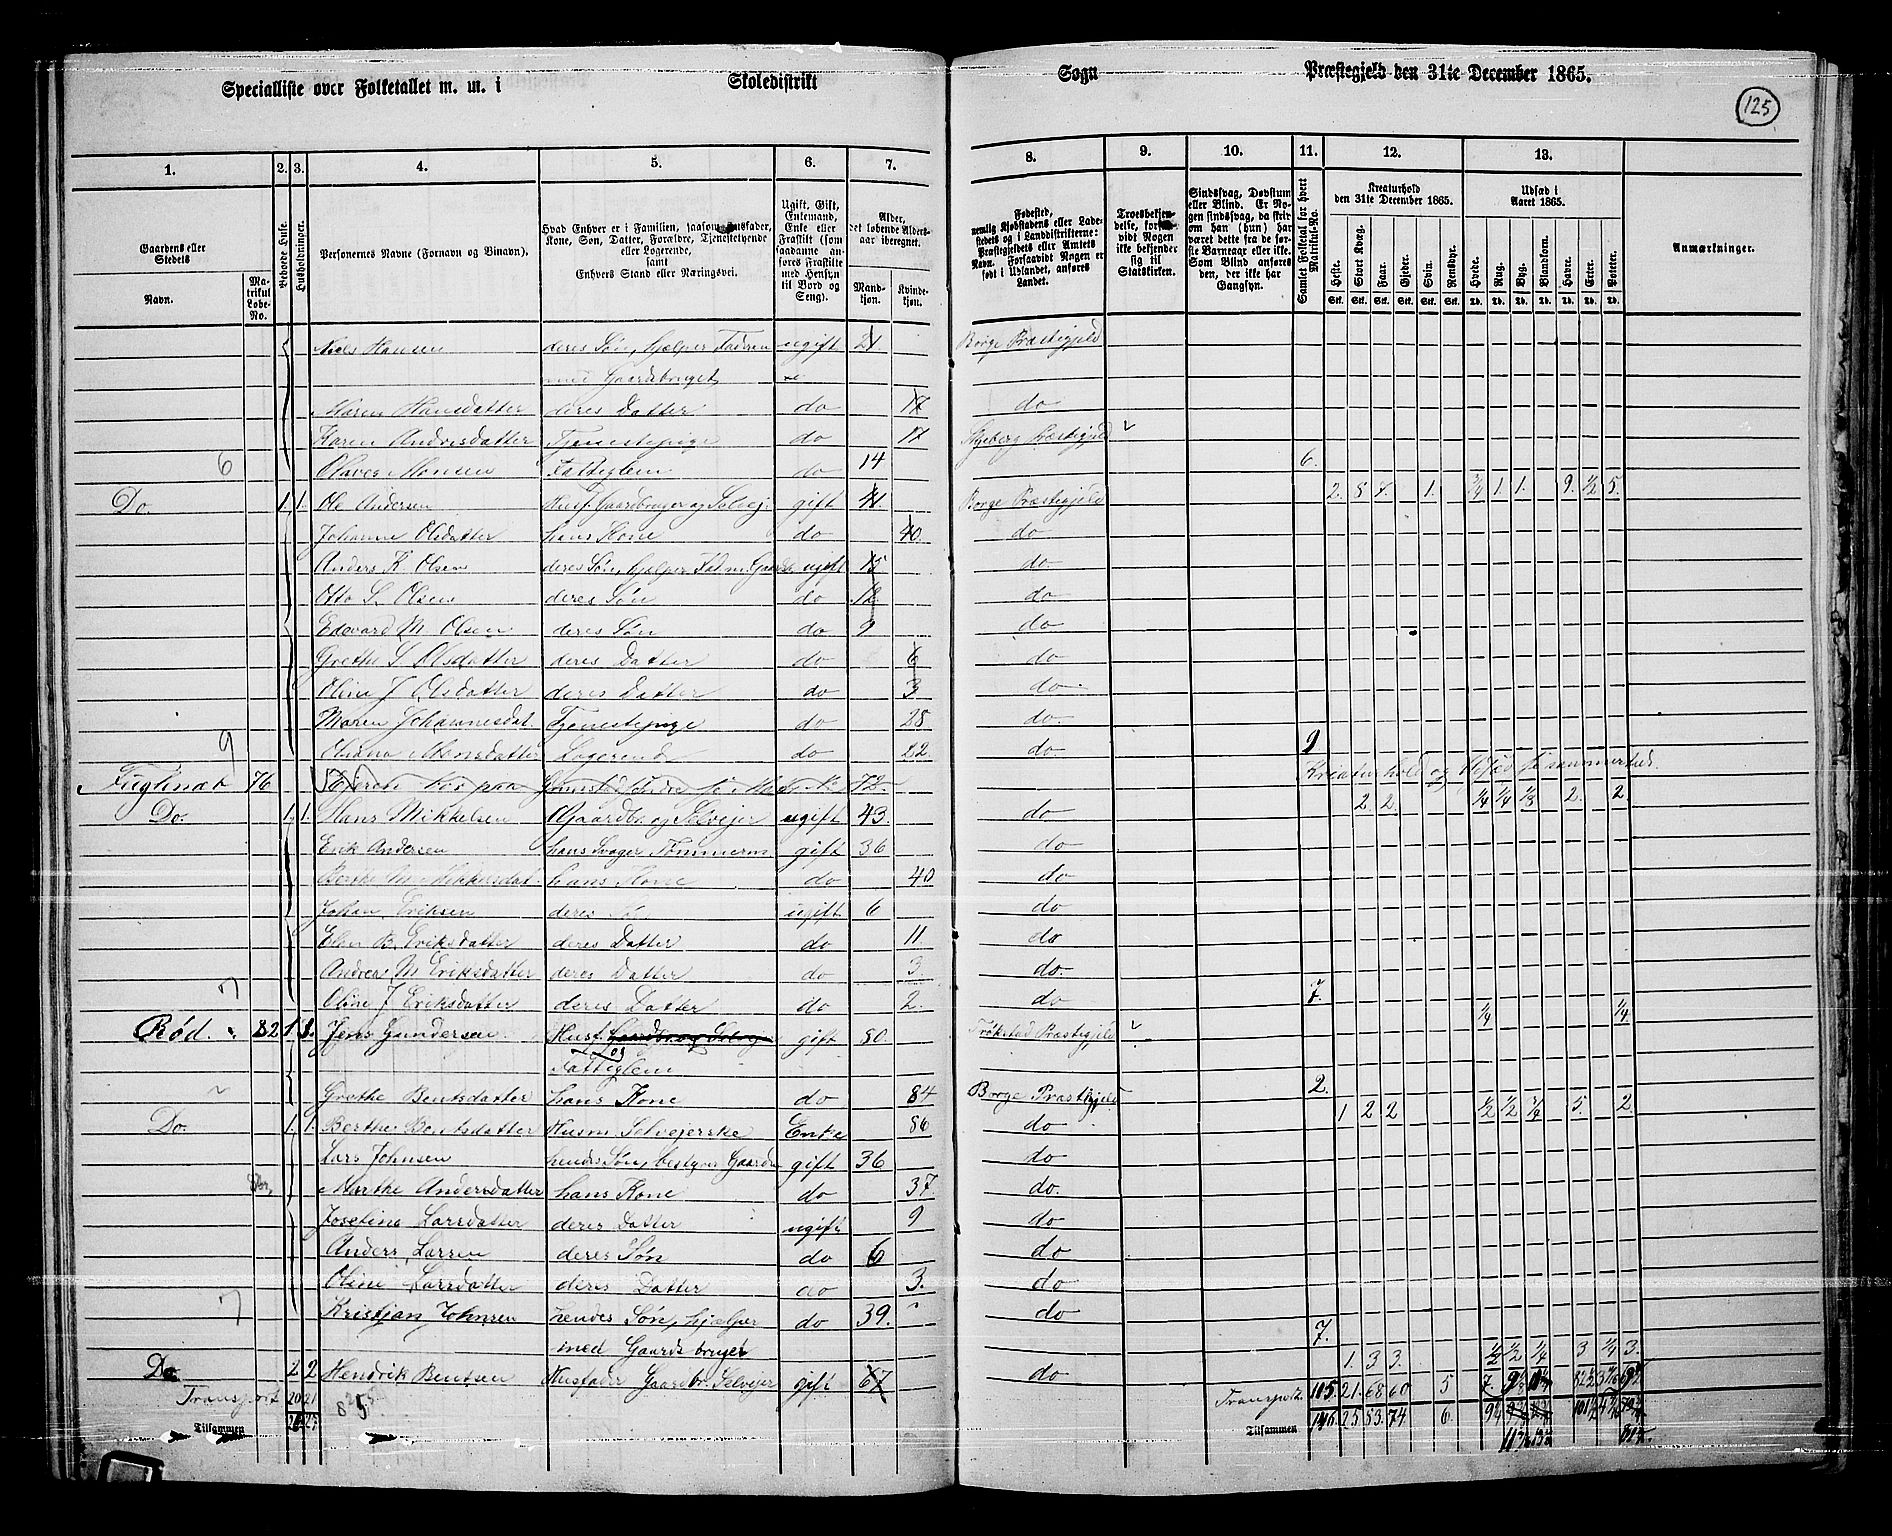 Specialliste over Folketallet m. m. i Skoledistrikt Sogn Præstegjeld den 31te December 1865.
125
1. 2. 3. 4. 5. 6. 7. 8. 9. 10. 11. 12. 13.
Gaardens eller Stedets Navn. Matrikul Løbe-No. Beboede Huse. Husholdninger.
Personernes Navne (Fornavn og Binavn).
Hvad Enhver er i Familien, saasom Huusfader, Kone, Søn, Datter, Forældre, Tjenestetyende eller Logerende, samt Enhvers Stand eller Næringsvei.
Ugift, Gift, Enkemand, Enke eller Fraskilt (som saadanne anføres Fraskilte med Hensyn til Bord og Seng).
Alder, det løbende Aldersaar iberegnet. Mandkjøn. Kvindekjøn.
Fødested, nemlig Kjøbstadens eller Ladestedets og i Landdistrikterne: Præstegjeldets eller Amtets Navn. Forsaavidt Nogen er født i Udlandet, anføres Landet.
Troesbekjendelse, forsaavidt Nogen ikke bekjender sig til Statskirken.
Sindssvag, Døvstum eller Blind. Er Nogen sindssvag, da skrives om han (hun) har været dette fra de første Barneaar eller ikke. Som Blind anføres den, der ikke har Gangsyn.
Samlet Folketal for hvert Matrikul-No.
Kreaturhold den 31te December 1865.
Heste. Stort Kvæg. Faar. Gjeder. Svin. Rensdyr.
Udsæd i Aaret 1865.
Hvede. Rug. Byg. Blandkorn. Havre. Erter. Poteter.
Anmærkninger.
Niels Hansen deres Søn, hjælper Faderen ugift 21. Borge Præstegjeld
med Gaardsbruget
Maren Hansdatter deres Datter do 17 do
Karen Andresdatter Tjenestepige do 17 Skjeberg Præstegjeld
6 Olaves Monsen Fattiglem do 14 6.
Do. 1. 1. Ole Andersen Husf. Gaardbruger og Selvej. gift 41. Borge Præstegjeld 2. 8 7. 1. 3/4 1. 1. 9. 1/2 5.
Johanne Olsdatter hans Kone do 40. do
Anders K Olsen deres Søn, hjælper Fad m. Gaards ugift 15 do
Otto S. Olsen deres Søn do 12 do
Edevard M. Olsen deres Søn do 9 do
Grethe S Olsdatter deres Datter do 6 do
Oline J Olsdatter deres Datter do 3 do
Maren Johannesdat. Tjenestepige do 28 do
9 Monsdatter Logerend do 22. do 9
Fuglenæt 76 72. Kreaturhold og
Do. 1. 1. Hans Mikkelsen Gaardbr. og Selvejer ugift 43. do 2. 2. 1/4 1/4 1/8 2. 2
Erik Andersen hans Svager Tømmerm gift 36 do
Berthe M. Mikkelsdat hans Kone do 40 do
Johan Eriksen deres Søn ugift 6 do
Elen B. Eriksdatter deres Datter do 11. do
Andrea M Eriksdatter deres Datter do 3. do
7 Oline J Eriksdatter deres Datter do 2. do 7.
Rød. 82 1. 1. Jens Gundersen Husf. Gaardbr og Selvej gift 80. Trøkstad Præstegjeld 1/4 1/4
og Fattiglem
Grethe Bentsdatter hans Kone do 84 Borge Præstegjeld 2.
Do. 1. 1. Berthe Bentsdatter Husm Selvejerske Enke 86 do 1. 2 2. 1/2 1/2 3/4 5. 2.
Lars Johnsen hendes Søn, bestyrer Gaarden gift 36 do
Marthe Andersdatter hans Kone do 37 do.
Josefine Larsdatter deres Datter ugift 9 do
Anders Larsen deres Søn do 6 do
Oline Larsdatter deres Datter do 3. do
7 Kristjan Johnsen hendes Søn, hjælper do 39. do
med Gaards bruget 7.
Do. 2 2 Hendrik Bentsen Husfader Gaardbr. Selvejer gift 67 do 1. 3 3. 1/2 1/2 1/4 3 1/4 3.
Transport 20 21 Transport 115. 21. 68 60 5 7.
Tilsammen Tilsammen 146. 25. 83. 74 6. 9 1/4